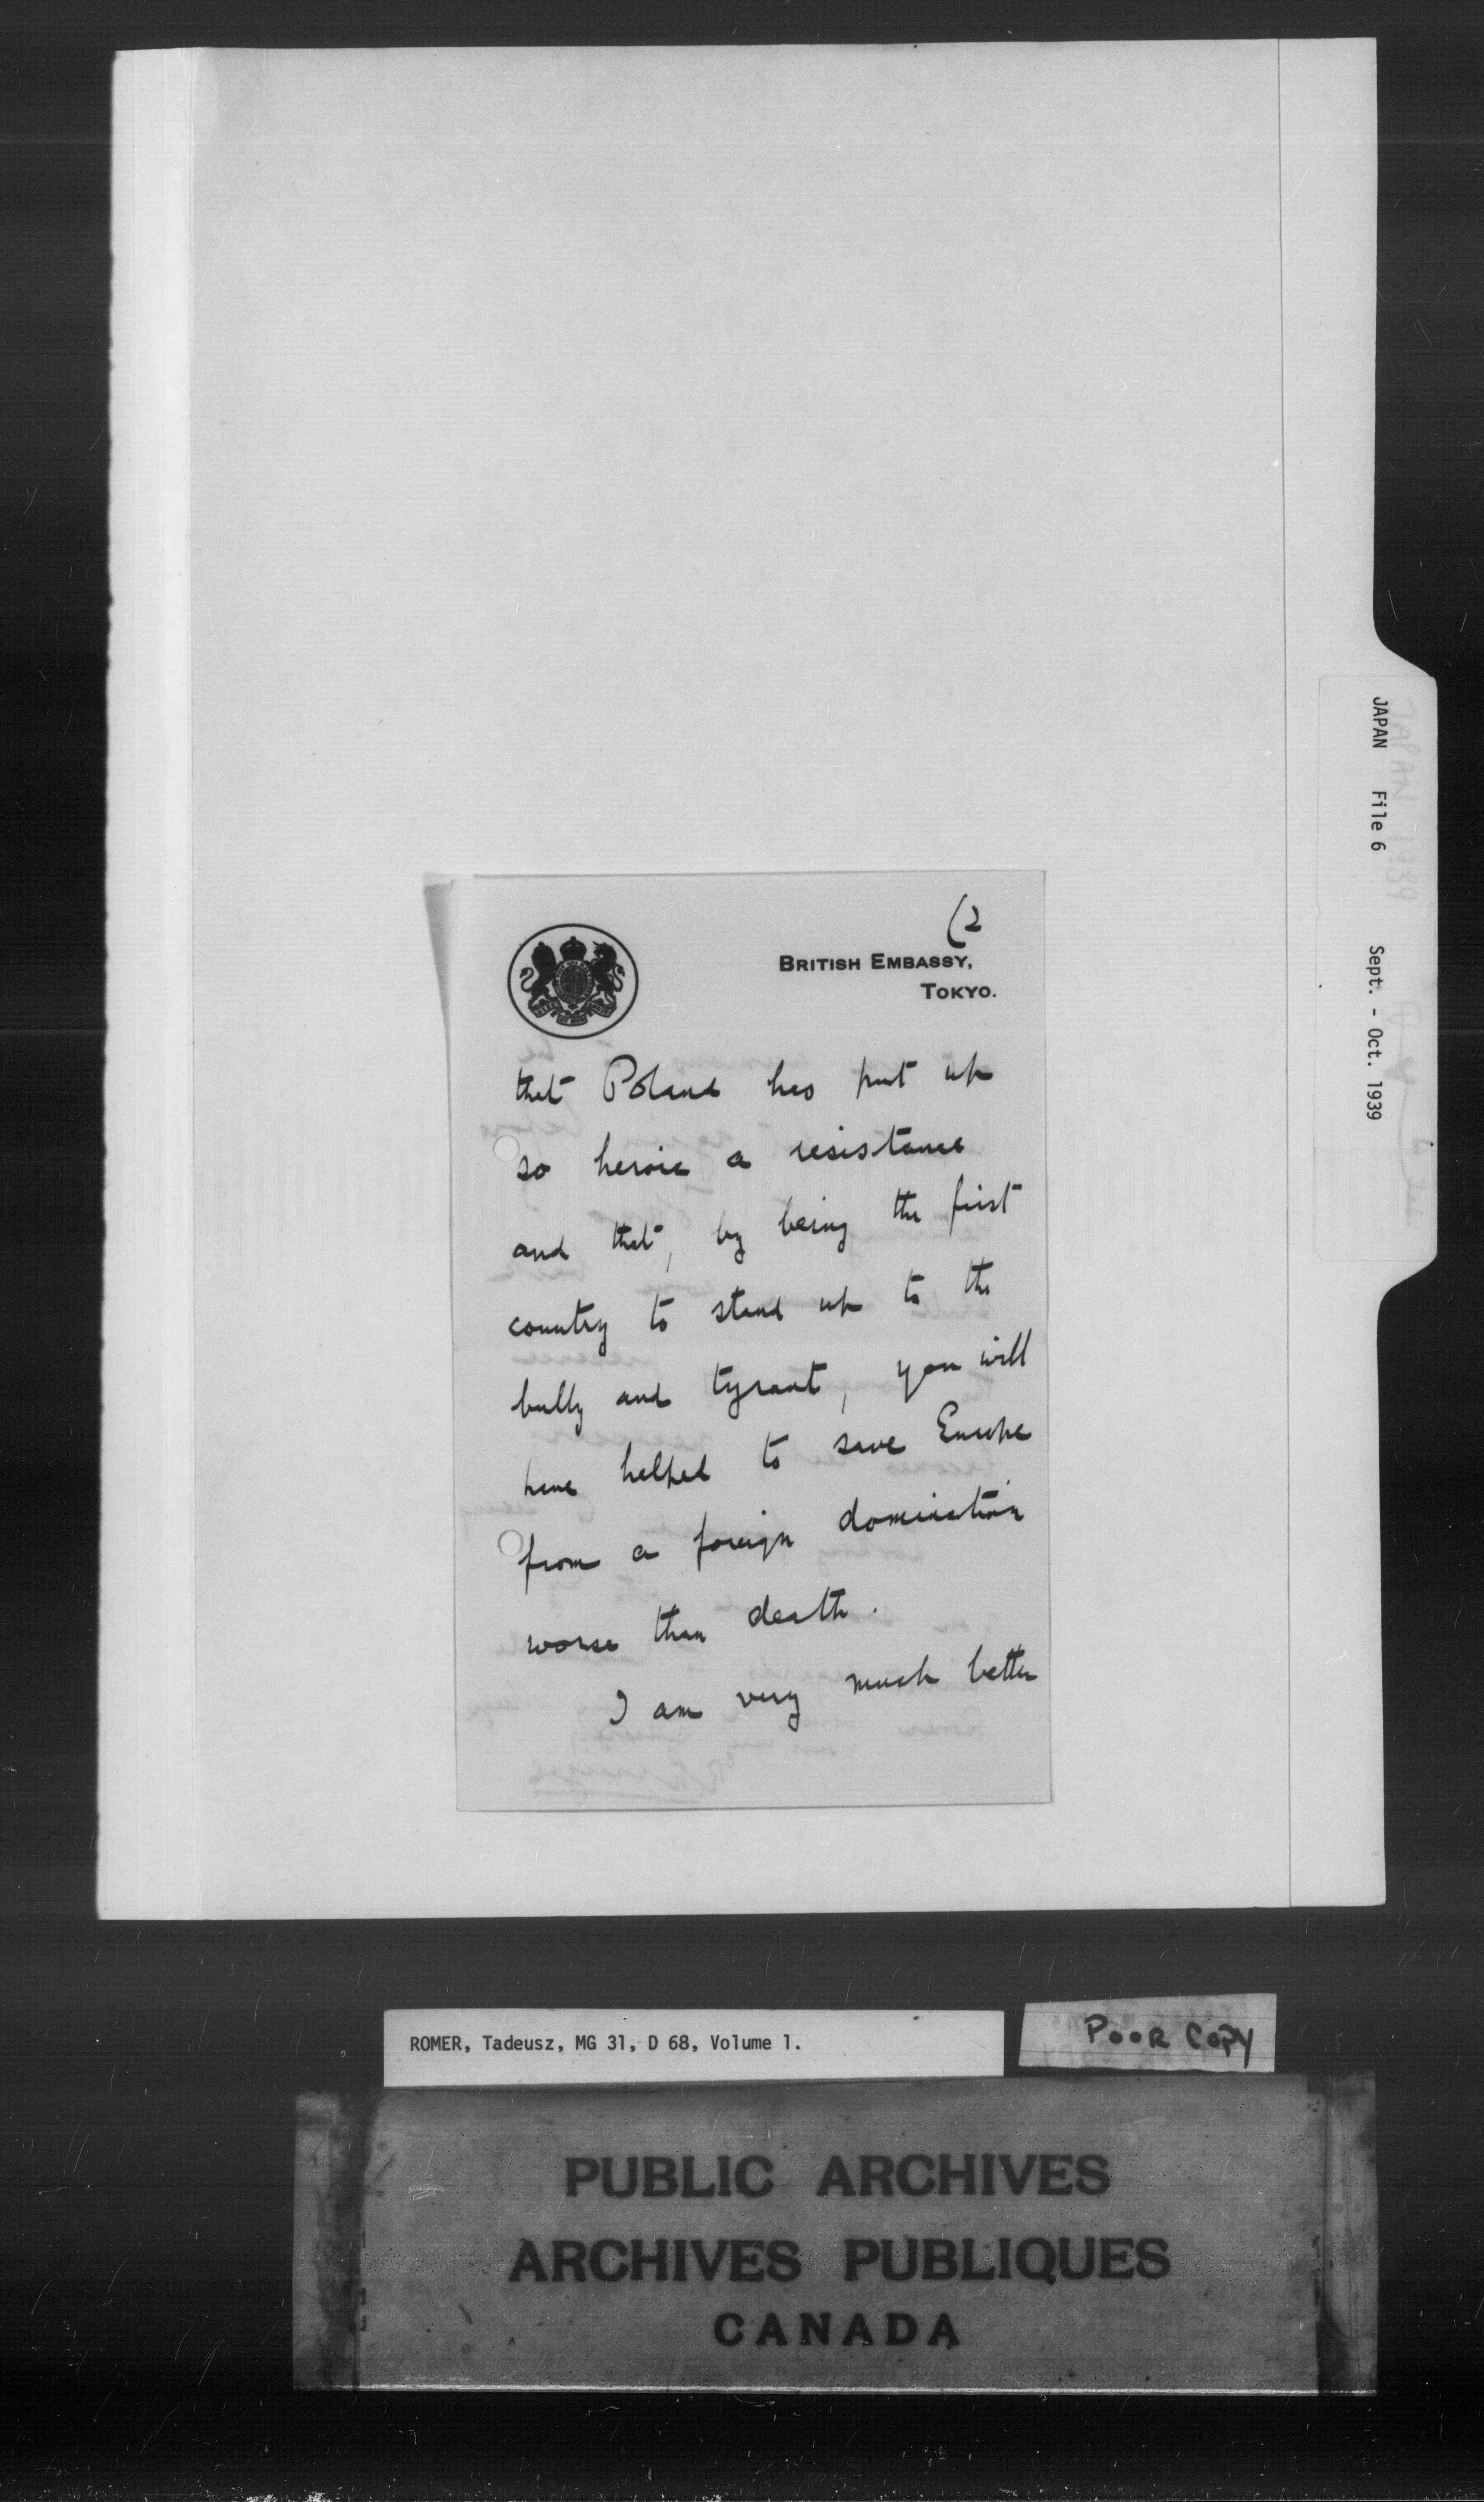 (2
BRITISH EMBASSY,
TOKYO.
that Poland has put up
so heroic a resistance
and that, by being the first
country to stand up to the
bully and tyrant, you will
have helped to save Europe
from a foreign domination
worse than death.
I am very much better
JAPAN File 6 Sept. - Oct. 1939
ROMER, Tadeusz, MG 31, D 68, Volume 1.
POOR COPY
PUBLIC ARCHIVES
ARCHIVES PUBLIQUES
CANADA